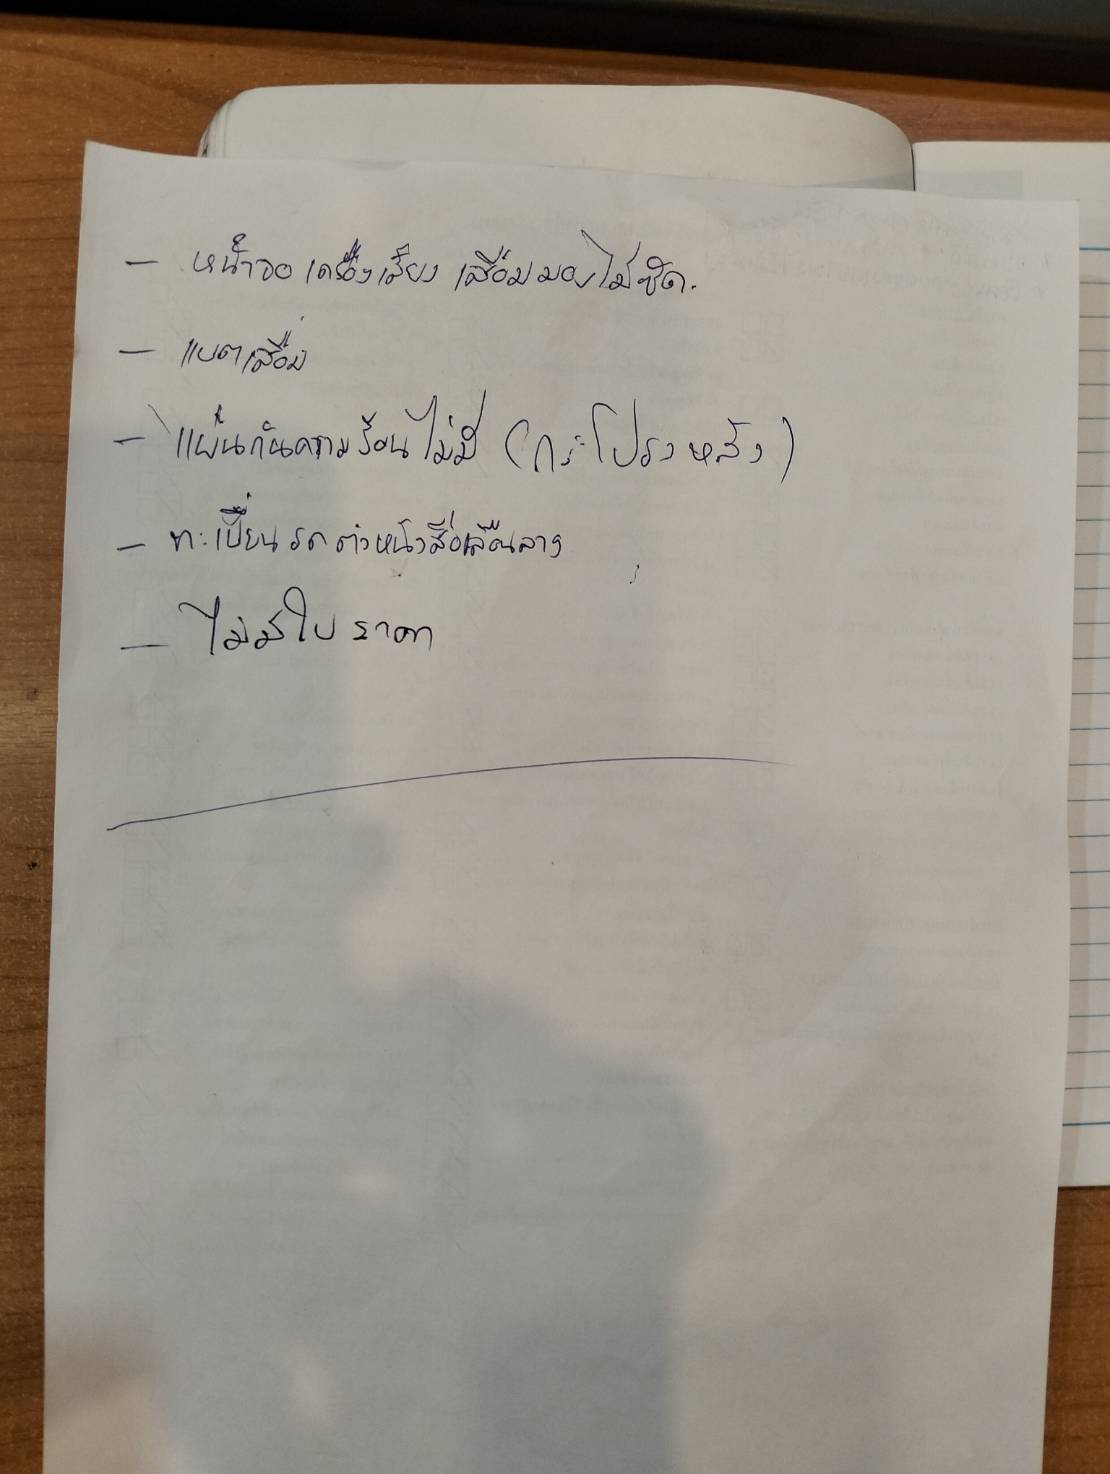 - หน้าจอ เครื่องเสียง เสื่อมมองไม่ชัด.
- แบตเสื่อม
- แผ่นกันความร้อน ไม่มี (กระโปรง หลัง)
- ทะเบียน รถ ตัวหนังสือเลือนลาง
- ไม่มีใบ ราคา